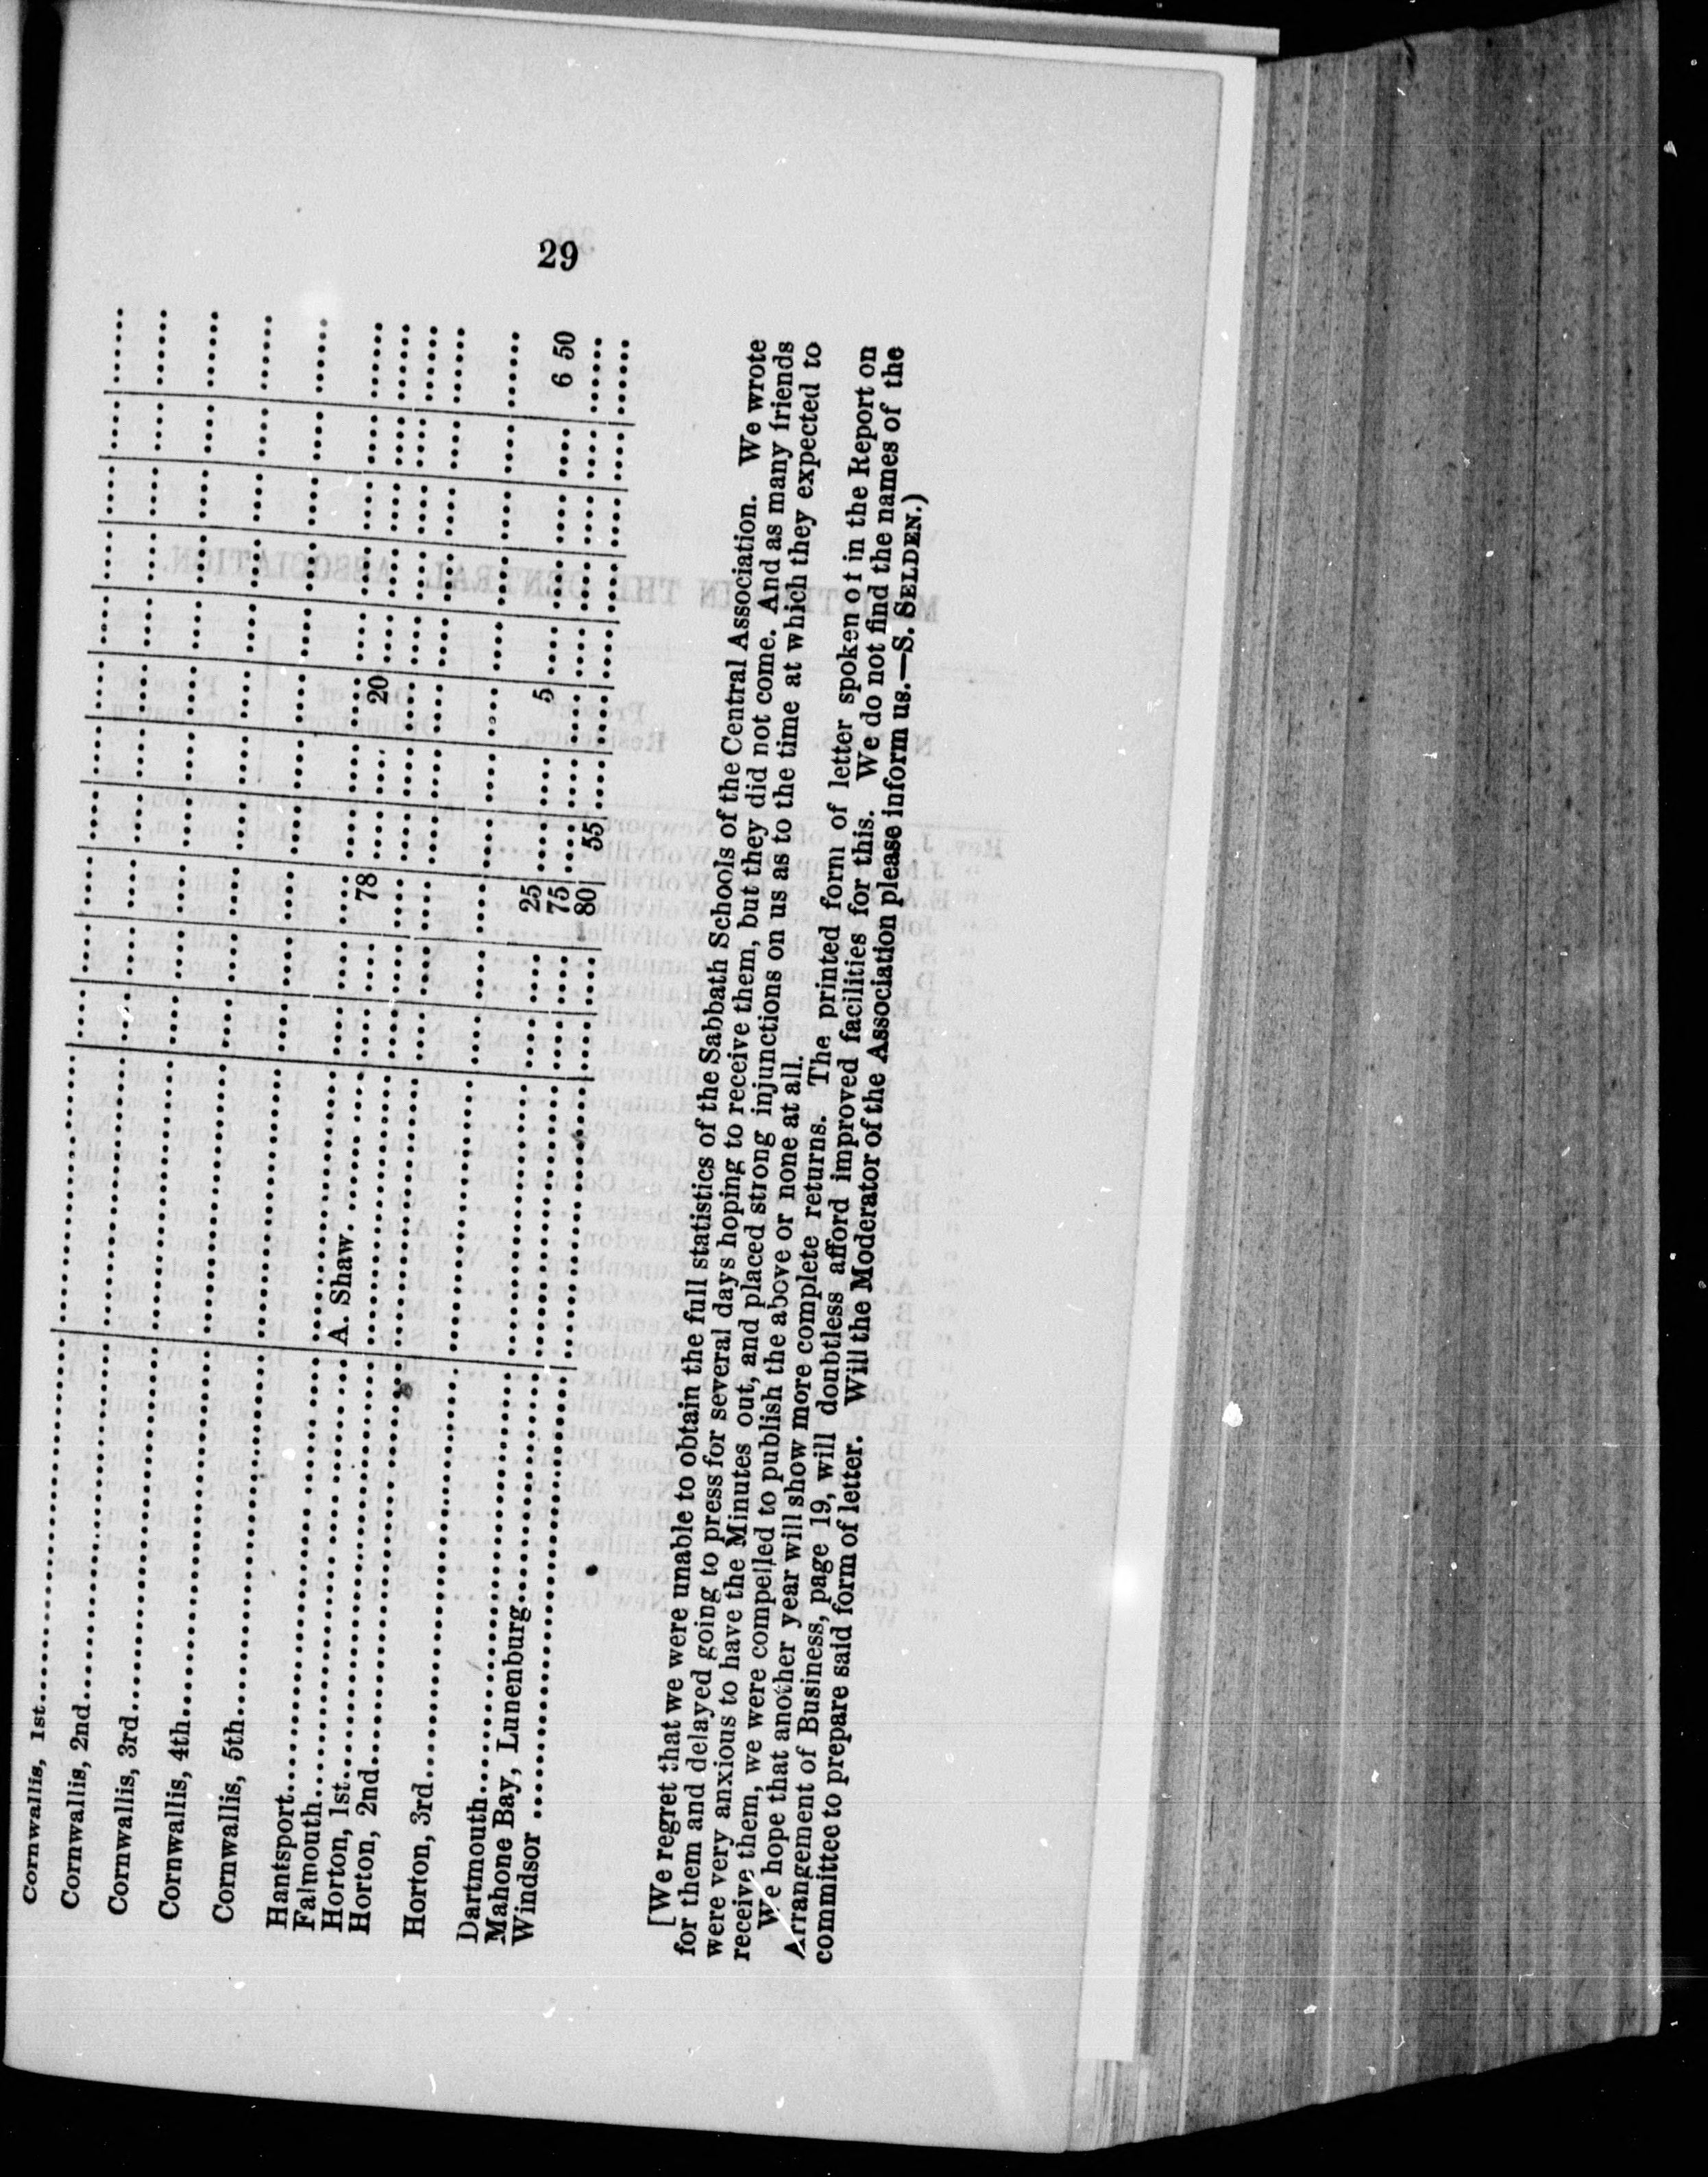 29
Cornwallis, 1st
Cornwallis, 2nd
Cornwallis, 3rd
Cornwallis, 4th
Cornwallis, 5th
Hantsport
Falmouth
Horton, 1st A. Shaw 78 20
Horton, 2nd
Horton, 3rd
Dartmouth 25 5 6 50
Mahone Bay, Lunenburg 75
Windsor 80 55
[We regret that we were unable to obtain the full statistics of the Sabbath Schools of the Central Association. We wrote
for them and delayed going to press for several days hoping to receive them, but they did not come. And as many friends
were very anxious to have the Minutes out, and placed strong injunctions on us as to the time at which they expected to
receive them, we were compelled to publish the above or none at all.
We hope that another year will show more complete returns. The printed form of letter spoken of in the Report on
Arrangement of Business, page 19, will doubtless afford improved facilities for this. We do not find the names of the
committee to prepare said form of letter. Will the Moderator of the Association please inform us.—S. SELDEN.)